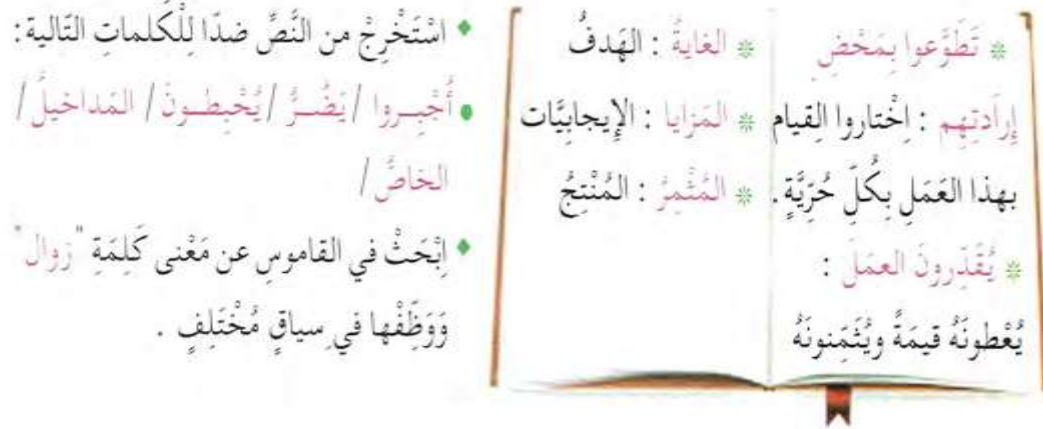 * تَطَوَّعوا بِمَحْضِ
إِرادَتِهِم : اِخْتاروا القِيام
بهذا العَمَلِ بِكُلِّ حُرِّيَّةٍ.
* يُقَدِّرونَ العمَلَ :
يُعْطونَهُ قيمَةً ويُثَمِّنونَهُ
* الغايةُ : الهَدفُ
* المَزايا : الإِيجابِيَّات
* المُثْمِرُ : المُنْتِجُ
♦ اسْتَخْرِجْ من النَّصِّ ضدّا لِلْكَلماتِ التّالية :
● أُجْبِروا / يَضُرُّ / يُحْبِطونَ / المَداخيلُ /
الخاصُّ /
♦ اِبْحَثْ في القاموسِ عن مَعْنى كَلِمَةِ "زوال"
وَوَظِّفْها في سياقٍ مُخْتَلِفٍ .